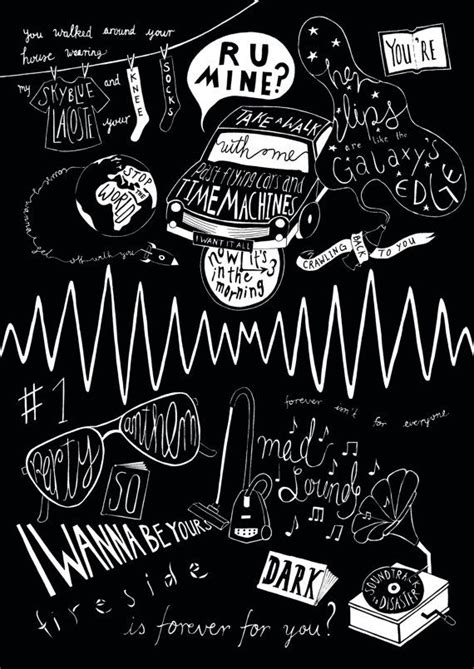 you walked around your
house wearing
my
SKY BLUE
LACOSTE
and
your
KNEE
SOCKS
R U
MINE?
YOU'RE
her
lips
are like the
Galaxy's
EDGE
TAKE A WALK
with me
past flying cars and
TIME MACHINES
I WANT IT ALL
STOP
THE
WORLD
with you
now it's 3
in the
morning
CRAWLING
BACK
TO YOU
#1
party anthem
SO
forever isn't for everyone
mad
Sounds
I WANNA BE YOURS
DARK
SOUNDTRACK
TO
DISASTER
fireside
is forever for you?